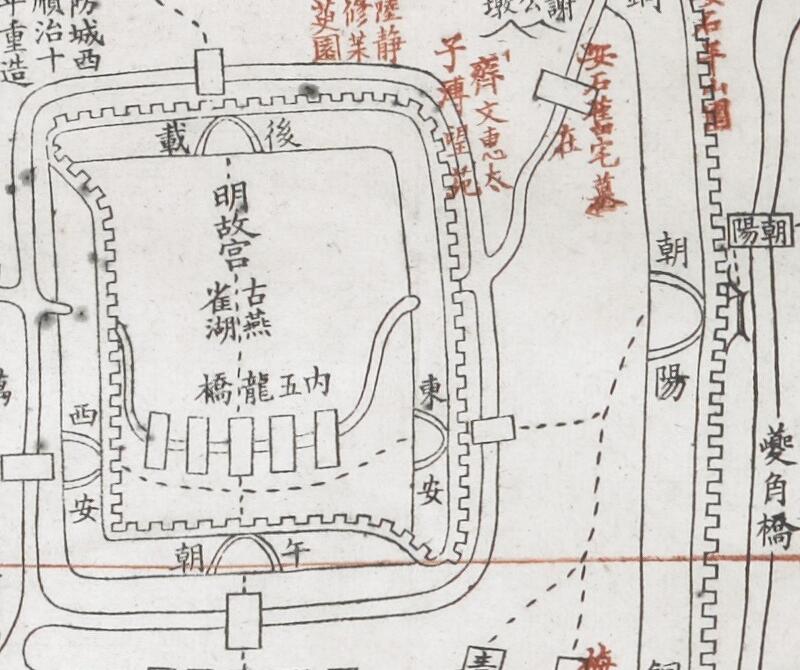 防城西
順治十
年重造
陸靜
修茱
萸園
謝公
墩
齊文惠太
子博望苑
安石舊宅基
在
後載
明故宮
古燕
雀湖
內五龍橋
東安
西安
午朝
朝陽
朝陽
夔角橋